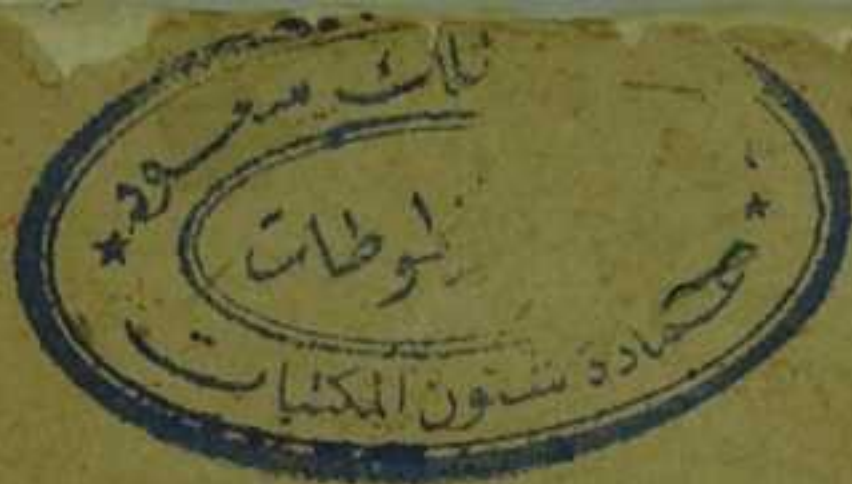 الملك سعود
المخطوطات
عمادة شئون المكتبات